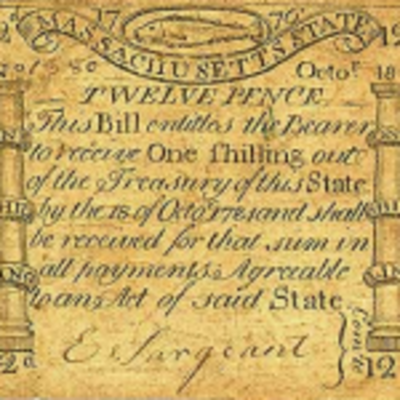 17 76
MASSACHUSETTS STATE
Octo.r 18
TWELVE PENCE
This Bill entitles the Bearer
to receive One shilling out
of the Treasury of this State
by the 18. of Octo.r 1781 and shall
be received for that sum in
all payments Agreeable
to an Act of said State
E. Sargeant
Comte
12d
12